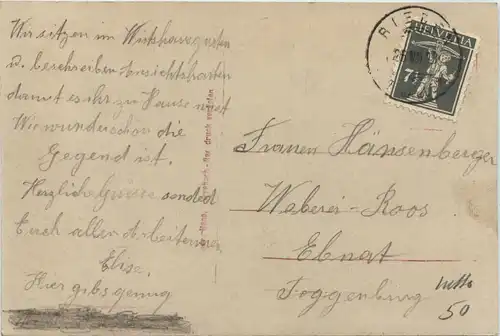 Wir sitzen im Wirtshausgarten
u. beschreiben Ansichtskarten
damit es ihr zu Hause wisst
Wie wunderschön die
Gegend ist.
Herzliche Grüsse sendet
Euch allen Arbeiterinnen
Elise.
Hier gibs genug
HELVETIA
7½
Frauen Hänsenberger
Weberei-Roos
Ebnat
Toggenburg
netto
50